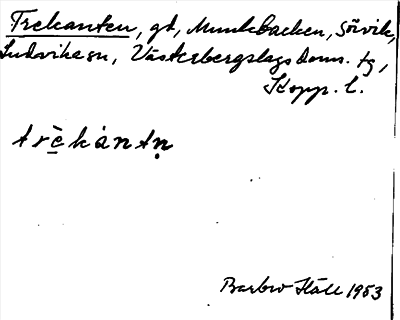 Trekanten, gd, Munkbacken, Sörvik,
Ludvika sn, Västerbergslags doms. tg,
Kopp. l.
trè̱kántṇ
Barbro Häll 1953